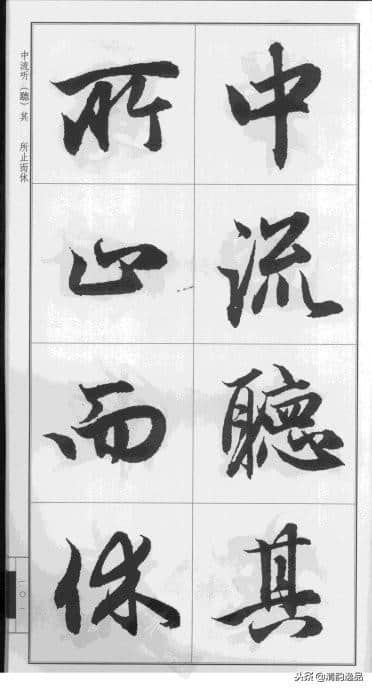 中流聽其
所止而休
中流听（聽）其　所止而休
一〇一
头条@清韵逸品